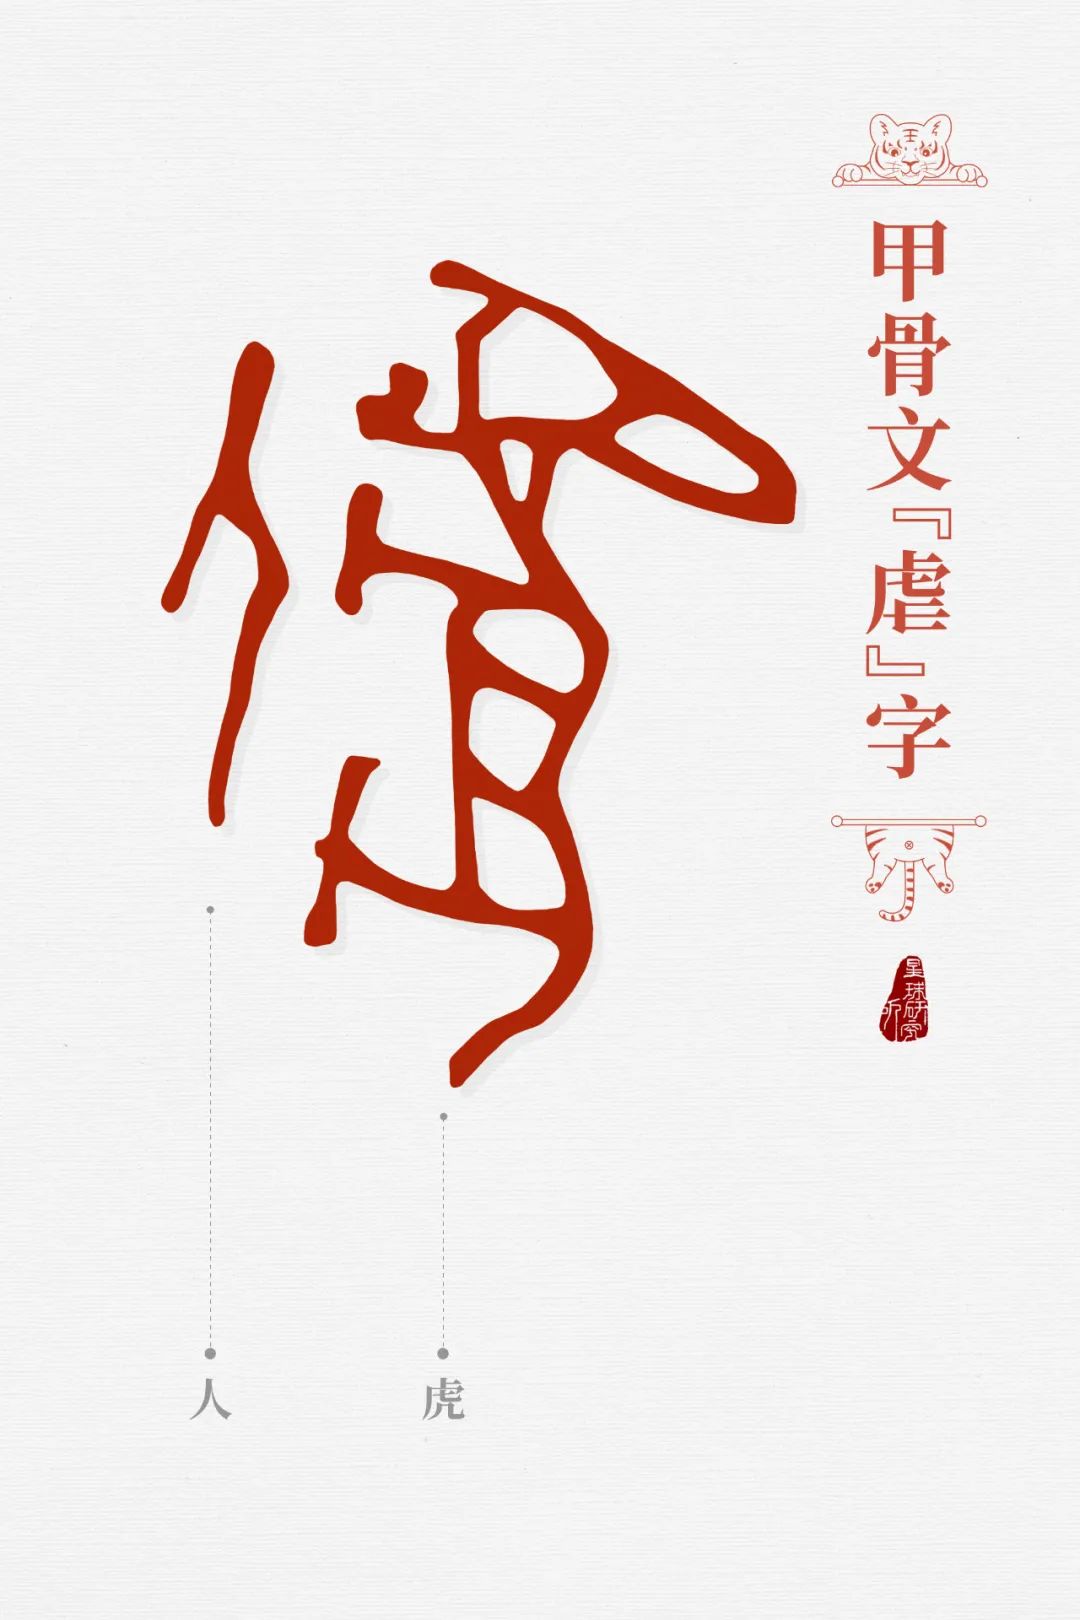 甲骨文『虐』字
星球研究所
人
虎